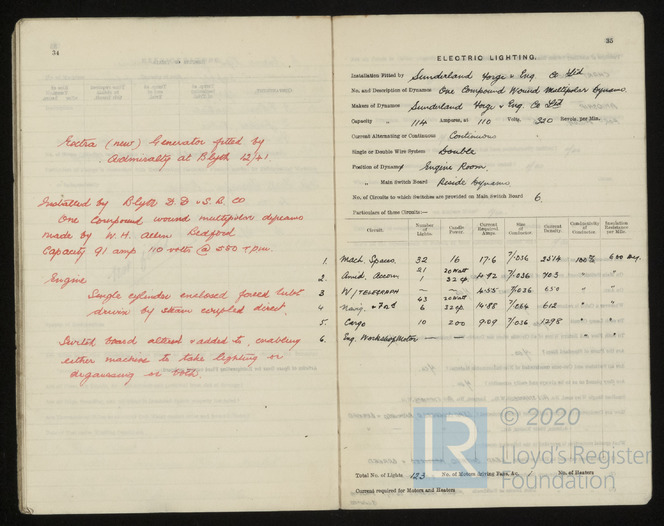 34
Extra (new) Generator fitted by
Admiralty at Blyth 12/41.
Installed by Blyth D.D. & S.B. Co
One Compound wound multipolar dynamo
made by W. H. Allen Bedford
Capacity 91 amp 110 volts @ 550 r.p.m.
Engine
Single cylinder enclosed forced lubt
driven by steam coupled direct.
Switch board altered & added to, enabling
either machine to take lighting or
degaussing or both.
35
ELECTRIC LIGHTING.
Installation Fitted by Sunderland Forge & Eng. Co Ltd
No. and Description of Dynamos One Compound Wound Multipolar Dynamo.
Makers of Dynamos Sunderland Forge & Eng. Co Ltd
Capacity " 114 Amperes, at 110 Volts, 350 Revols. per Min.
Current Alternating or Continuous Continuous
Single or Double Wire System Double
Position of Dynamos Engine Room
" Main Switch Board Beside Dynamo
No. of Circuits to which Switches are provided on Main Switch Board 6.
Particulars of these Circuits:—
Circuit. Number of Lights. Candle Power. Current Required. Amps. Size of Conductor. Current Density. Conductivity of Conductor. Insulation Resistance per Mile.
1. Mach. Spaces. 32 16 17.6 7/.036 100% 600 Meg.
21 20 Watt
2. Amid. Accom 1 32 cp. 4.92 7/.036 703 " "
3. W/TELEGRAPH — — 4.55 7/.036 650 " "
43 20 Watt
4. Navig. & Fwd 6 32 cp. 14.88 7/.064 612 " "
5. Cargo 10 200 9.09 7/.036 1298 " "
6. Eng. Workshop Motor — — " "
Total No. of Lights 123 No. of Motors driving Fans, &c. No. of Heaters
Current required for Motors and Heaters
LR
© 2020
Lloyd's Register
Foundation